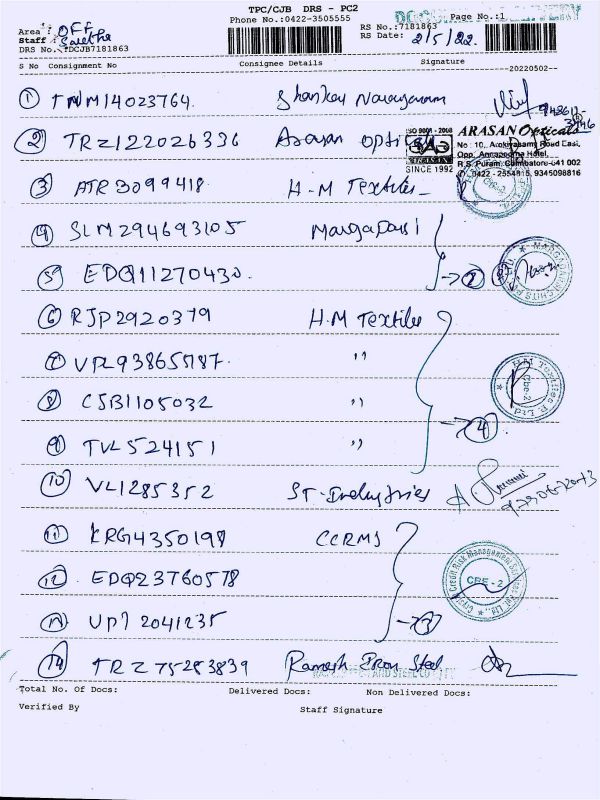 TPC/CJB DRS - PC2
Phone No.:0422-3505555
Page No.:1
Area : OFF
RS No.:7181863
Staff :
RS Date: 2/5/22.
DRS No. :DCJB7181863
S No Consignment No Consignee Details Signature
--20220502--
1 TNM14023764. Shankar Narayanan
2 TRZ122026336 Arasan optical
ISO 9001 - 2008 ARASAN Opticals
No : 10, Arokiyasamy Road East,
Opp. Annapoorna Hotel,
R.S. Puram, Coimbatore-641 002
SINCE 1992 0422 - 2554815, 9345098816
3 ATR3099418. H.M Textiles
4 SLM294693105 Margadarsi
5 EDQ11270430. → 2
6 RJP2920379 H.M Textiles
7 VPL93865787. ''
8 CJB1105032 ''
→ 4
9 TVL524151 ''
10 VL1285352 ST-Industries
11 KRG4350198 CCRMS
12 EDQ23760578
CBE - 2
UP72041235 → 3
14 TRZ75283839 Ramesh Iron Steel
Total No. Of Docs: Delivered Docs: Non Delivered Docs:
Verified By Staff Signature